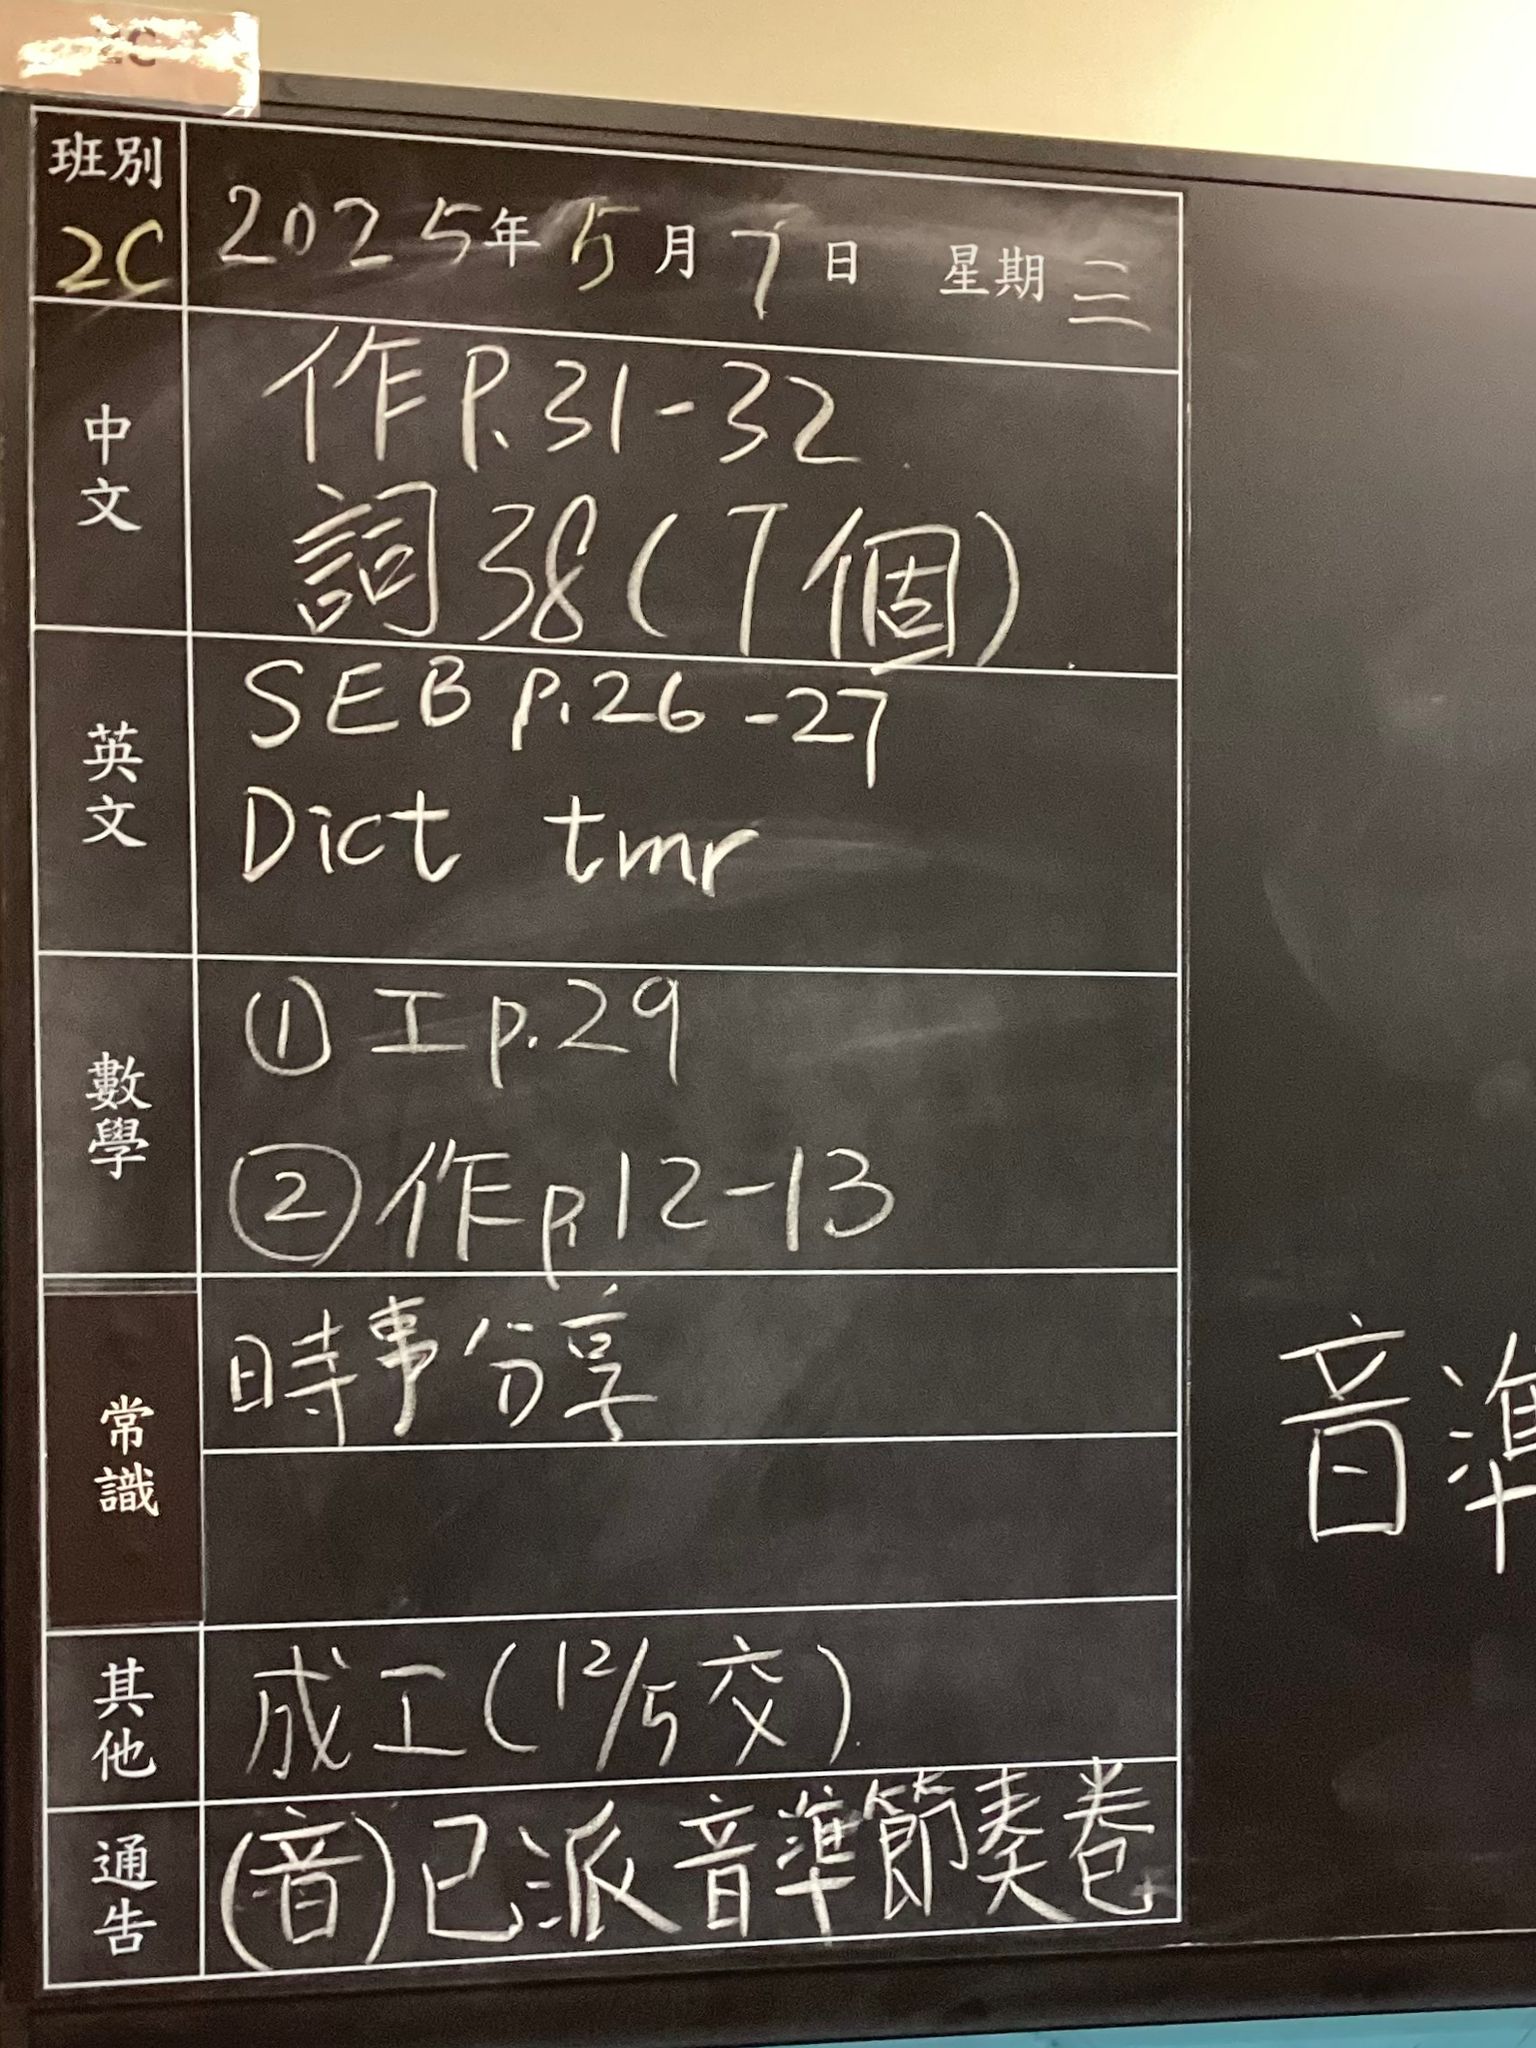 班別
2C
2025年 5月7日 星期三
中文
作P.31-32
詞38(7個)
英文
SEB P.26-27
Dict tmr
數學
① 工p.29
② 作p.12-13
常識
時事分享
其他
成工(12/5交)
通告
(音)已派音準節奏卷
音準